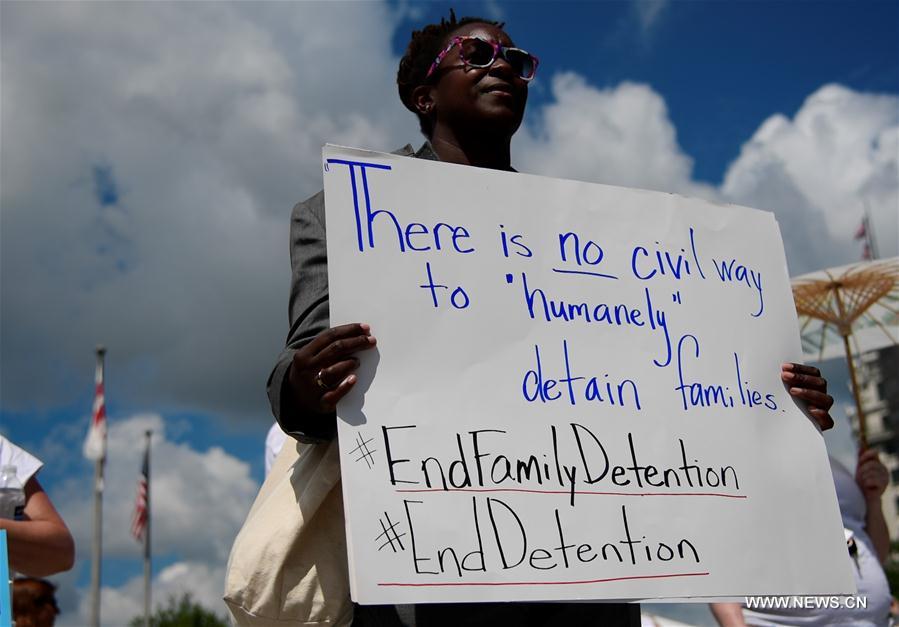 "There is no civil way
to "humanely"
detain families.
#EndFamilyDetention
#EndDetention
WWW.NEWS.CN